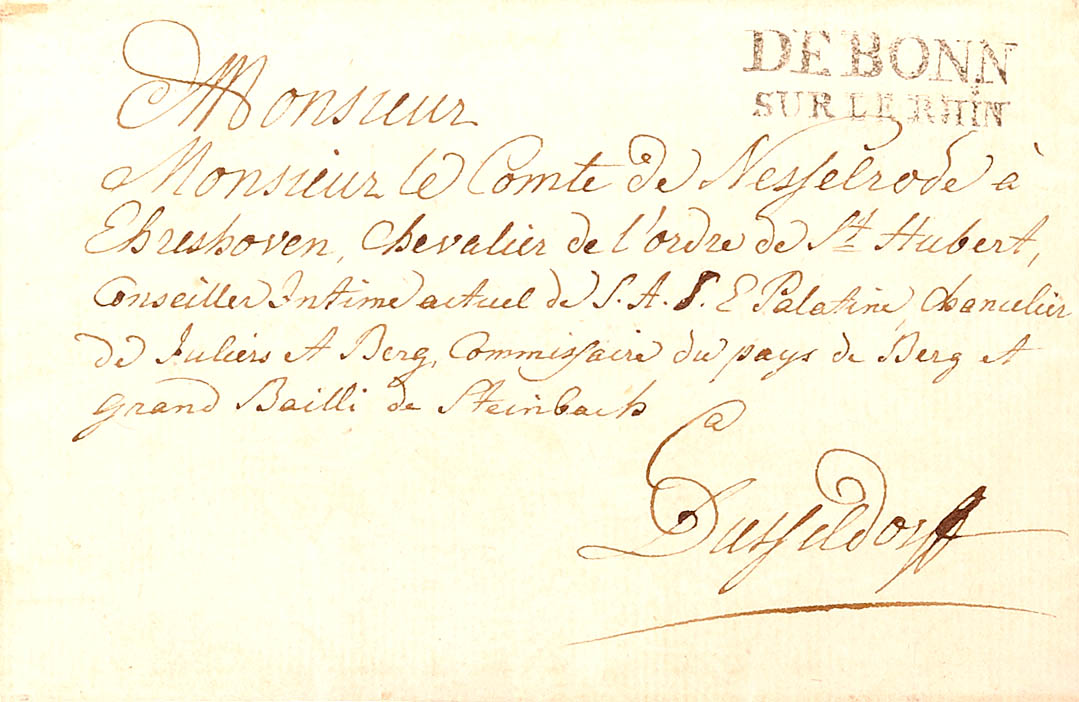 DE BONN
SUR LE RHIN
Monsieur
Monsieur le Comte de Nesselrode à
Ehreshoven, Chevalier de l'ordre de St Hubert,
Conseiller Intime actuel de S. A. S. E Palatine, Chancelier
de Juliers et Berg, Commissaire du pays de Berg et
grand Bailli de Steinbach
a
Dusseldorff